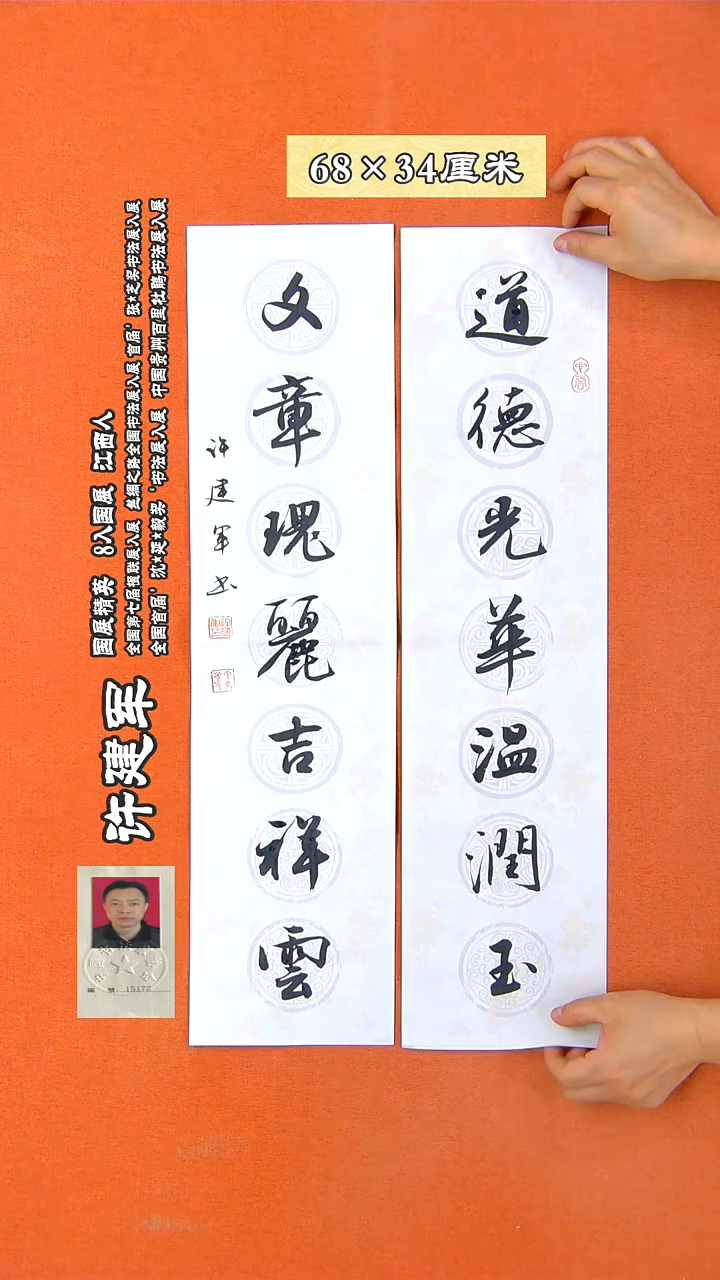 68×34厘米
道德光華温潤玉
文章瑰麗吉祥雲
许建军书
许建军
国展精英 8入国展 江西人
全国第七届楹联展入展 丝绸之路全国书法展入展 首届'张*芝奖书法展入展
全国首届'沈*延*毅奖'书法展入展 中国贵州百里杜鹃书法展入展
編號：15172